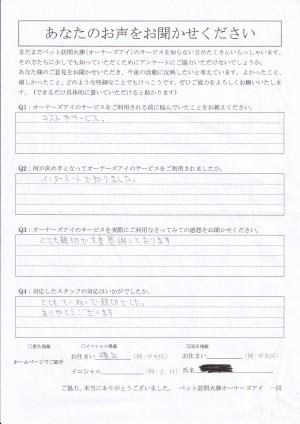 あなたのお声をお聞かせください
まだまだペット訪問火葬(オーナーズアイ)のサービスを知らない方がたくさんいらっしゃいます。
その方たちに少しでも知っていただくためにアンケートにご協力いただけないでしょうか。
あなた様のご意見をお聞かせいただき、今後の活動に反映したいと考えています。よかったこと、
嬉しかったこと、どのような些細なことでもけっこうです。ぜひご協力をよろしくお願いいたしま
す。(できるだけ具体的に書いていただけると助かります)
Q1:オーナーズアイのサービスをご利用される前に悩んでいたことをお教えください。
コストやサービス。
Q2:何が決め手となってオーナーズアイのサービスをご利用されましたか。
インターネットで知りました。
Q3:オーナーズアイのサービスを実際にご利用なさってみての感想をお聞かせください。
とても親切で大変感謝しております
Q4:対応したスタッフの対応はいかがでしたか。
とてもていねいで親切でした。
ありがとうございます
□匿名掲載 □イニシャル掲載
お住まい (例:中央区) お住まい (例:中央区)
ホームページでご紹介
イニシャル (例:J.H) 氏名
ご協力、本当にありがとうございました。 ペット訪問火葬オーナーズアイ 一同